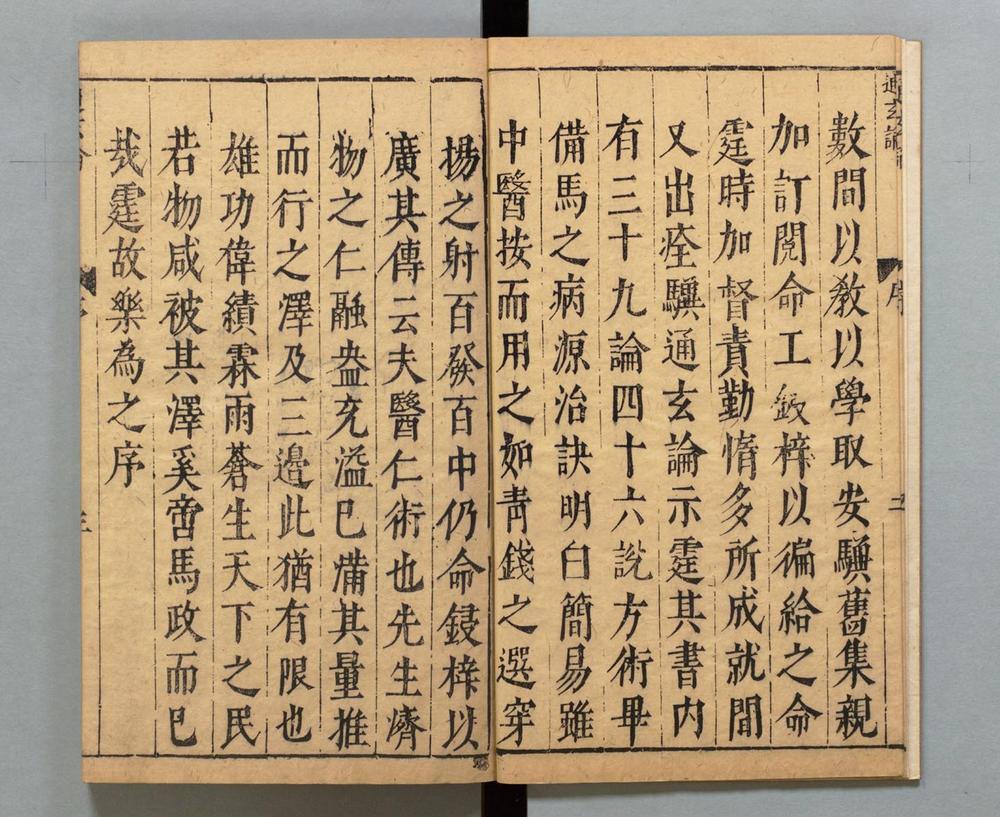 通玄論
序
數間以教以學取安驥舊集親
加訂閱命工鋟梓以徧給之命
霆時加督責勤惰多所成就間
又出痊驥通玄論示霆其書内
有三十九論四十六說方術畢
備馬之病源治訣明白簡易雖
中醫按而用之如靑錢之選穿
楊之射百發百中仍命鋟梓以
廣其傳云夫醫仁術也先生濟
物之仁融盎充溢已滿其量推
而行之澤及三邊此猶有限也
雄功偉績霖雨蒼生天下之民
若物咸被其澤奚啻馬政而已
哉霆故樂為之序